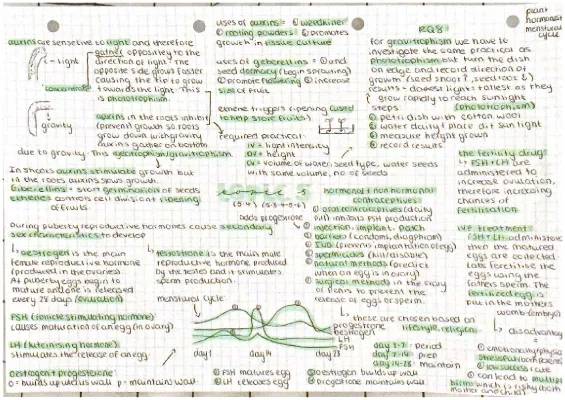 plant
hormones+
menstrual
cycle
auxins are sensetive to light and therefore
gather oppositley to the
direction of light. The
opposite side grows faster
causing the tip to grow
towards the light. This
is phototropism.
- light
concentrate
auxins in the roots inhibit
(prevent) growth so roots
grow down with gravity
auxins gather on bottom
gravity
due to gravity. This
In shoots auxins stimulate growth but
in the roots auxins slows growth.
Giberellins = start germination of seeds
etheneis controls cell division + ripening
of fruits.
During puberty reproductive hormones cause secondary
sex characteristics to develop
oestrogen is the main
female reproductive hormone
(produced in the ovaries)
At puberty eggs begin to
mature and one is released
every 28 days (ovulation)
FSH (follicle stimulating hormone)
causes maturation of an egg (in ovary)
LH (luteinising hormone)
stimulates the release of an egg
oestrogen + progesterone
o = builds up uterus wall p = maintains wall
uses of auxins = ① weedkiller
② rooting powders ③ promotes
growth in tissue culture
uses of geberellins = ① end
seed dormacy (begin sprouting)
② promote flowering ③ increase
size of fruit
ethene triggers ripening (used
to help store fruits)
required practical:
IV = light intensity
DV = height
CV = volume of water, seed type, water seeds
with same volume, no of seeds
testosterone is the main male
reproductive hormone produced
by the testes and it stimulates
sperm production.
menstrual cycle
progesterone
oestrogen
LH
FSH
day 1
day 14
day 28
① FSH matures egg
② LH releases egg
③ oestrogen builds up wall
④ progesterone maintains wall
RQ8:
for gravitrophism we have to
investigate the same practical as
phototrophism but turn the dish
on edge and record direction of
growth
results = darkest light = tallest as they
grow rapidly to reach sunlight
steps (phototrophism)
① petri dish with cotton wool
② water daily + place dif sun light
③ measure height grown
④ record results
hormonal + non hormonal
contraceptives:
① oral contraceptives (daily
pill) inhibits FSH production
② injection, implant, patch
③ barriers (condoms, diaphragm)
④ IUD (prevents implantation of egg)
⑤ spermicides (kill/disable)
⑥ natural methods (predict
when an egg is in ovary)
⑦ surgical methods
to prevent the
release of eggs or sperm.
these are chosen based on
lifestyle, religion
day 1-7 = period
day 7-14 = prep
day 14-28 = maintain
the fertility drugs
FSH + LH are
administered to
increase ovulation,
therefore increasing
chances of
fertilisation
IVF treatment
FSH + LH administered
then the matured
eggs are collected
labs foretilise the
eggs using the
fathers sperm. The
fertilized egg is
put in the mothers
womb (embryo)
disadvantages
① emotionally/physical
stressful
② low success rate
③ can lead to multiple
births which is risky (both
mother and child)